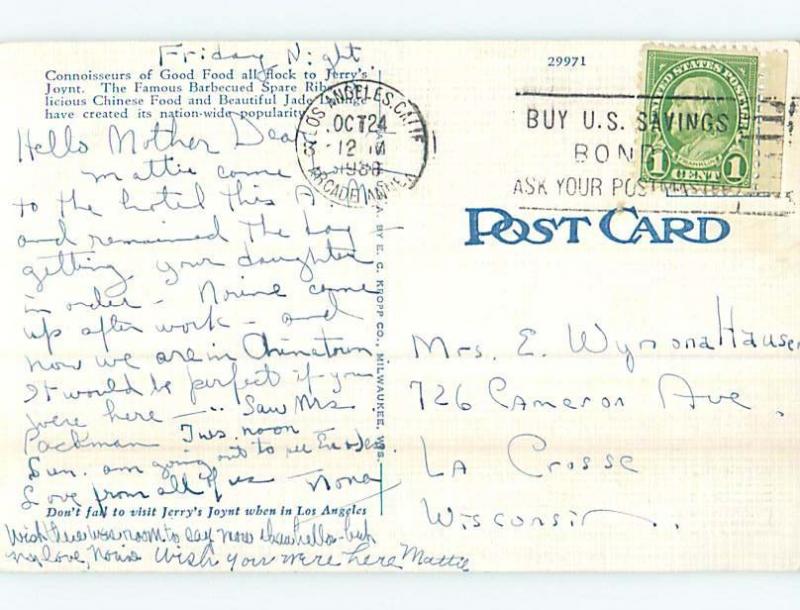 Friday Night.
Connoisseurs of Good Food all flock to Jerry's
Joynt. The Famous Barbecued Spare Ribs,
licious Chinese Food and Beautiful Jade Lounge
have created its nation-wide popularity.
Hello Mother Dear
Mattie come
to the hotel this A.M.
and remained the day
getting your daughter
in order - Norine came
up after work - and
now we are in Chinatown
It would be perfect if you
were here - Saw Mrs.
Packman Tues. noon
Sun. am going out to see
Love from all of us - Nona
Don't fail to visit Jerry's Joynt when in Los Angeles
Wish there was room to say more than hello - but
my love, Norine Wish you were here Mattie
BY E. C. KROPP CO., MILWAUKEE, WIS.
29971
LOS ANGELES, CALIF
OCT 24
12
ARCADE ANNEX
BUY U.S. SAVINGS
BONDS
ASK YOUR POSTMASTER
UNITED STATES POSTAGE
FRANKLIN
1 CENT 1
POST CARD
Mrs. E. Wymona Hauser
726 Cameron Ave.
La Crosse
Wisconsin..